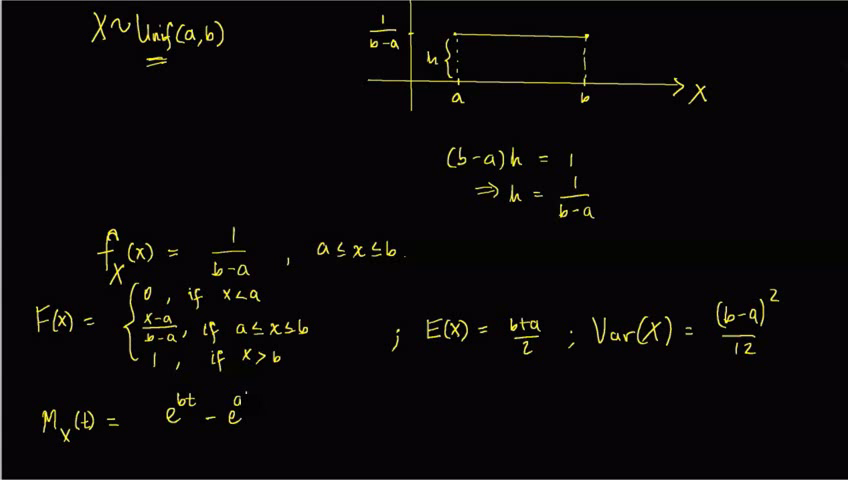 X ~ Unif(a,b)
1/(b-a)
h
a b X
(b-a)h = 1
⇒ h = 1/(b-a)
f_X(x) = 1/(b-a) , a ≤ x ≤ b.
F(x) = { 0 , if x < a
(x-a)/(b-a) , if a ≤ x ≤ b ; E(X) = (b+a)/2 ; Var(X) = (b-a)^2/12
1 , if x > b
M_X(t) = e^{bt} - e^{a